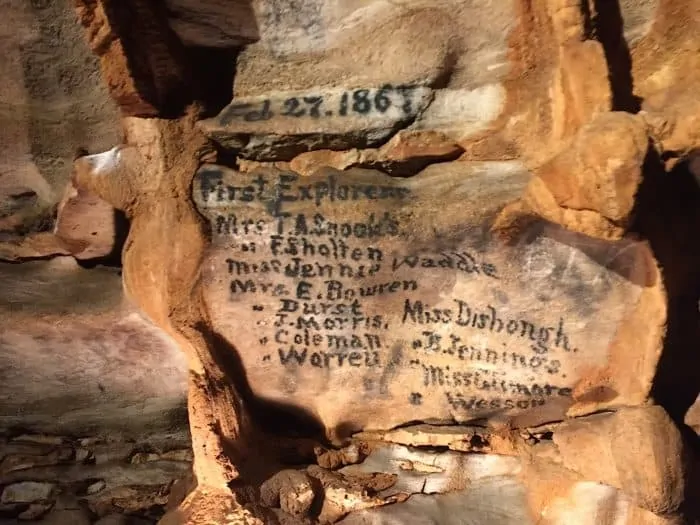 Feb 27. 1867
First Explorers
Mrs T. A. Snooks.
" F. Sholten
Miss Jennie Waddle
Mrs E. Bowren
" Durst
" J. Morris.
" Coleman
" Warren
Miss Dishongh.
" B. Jennings.
Miss Gilmore
" Wesson